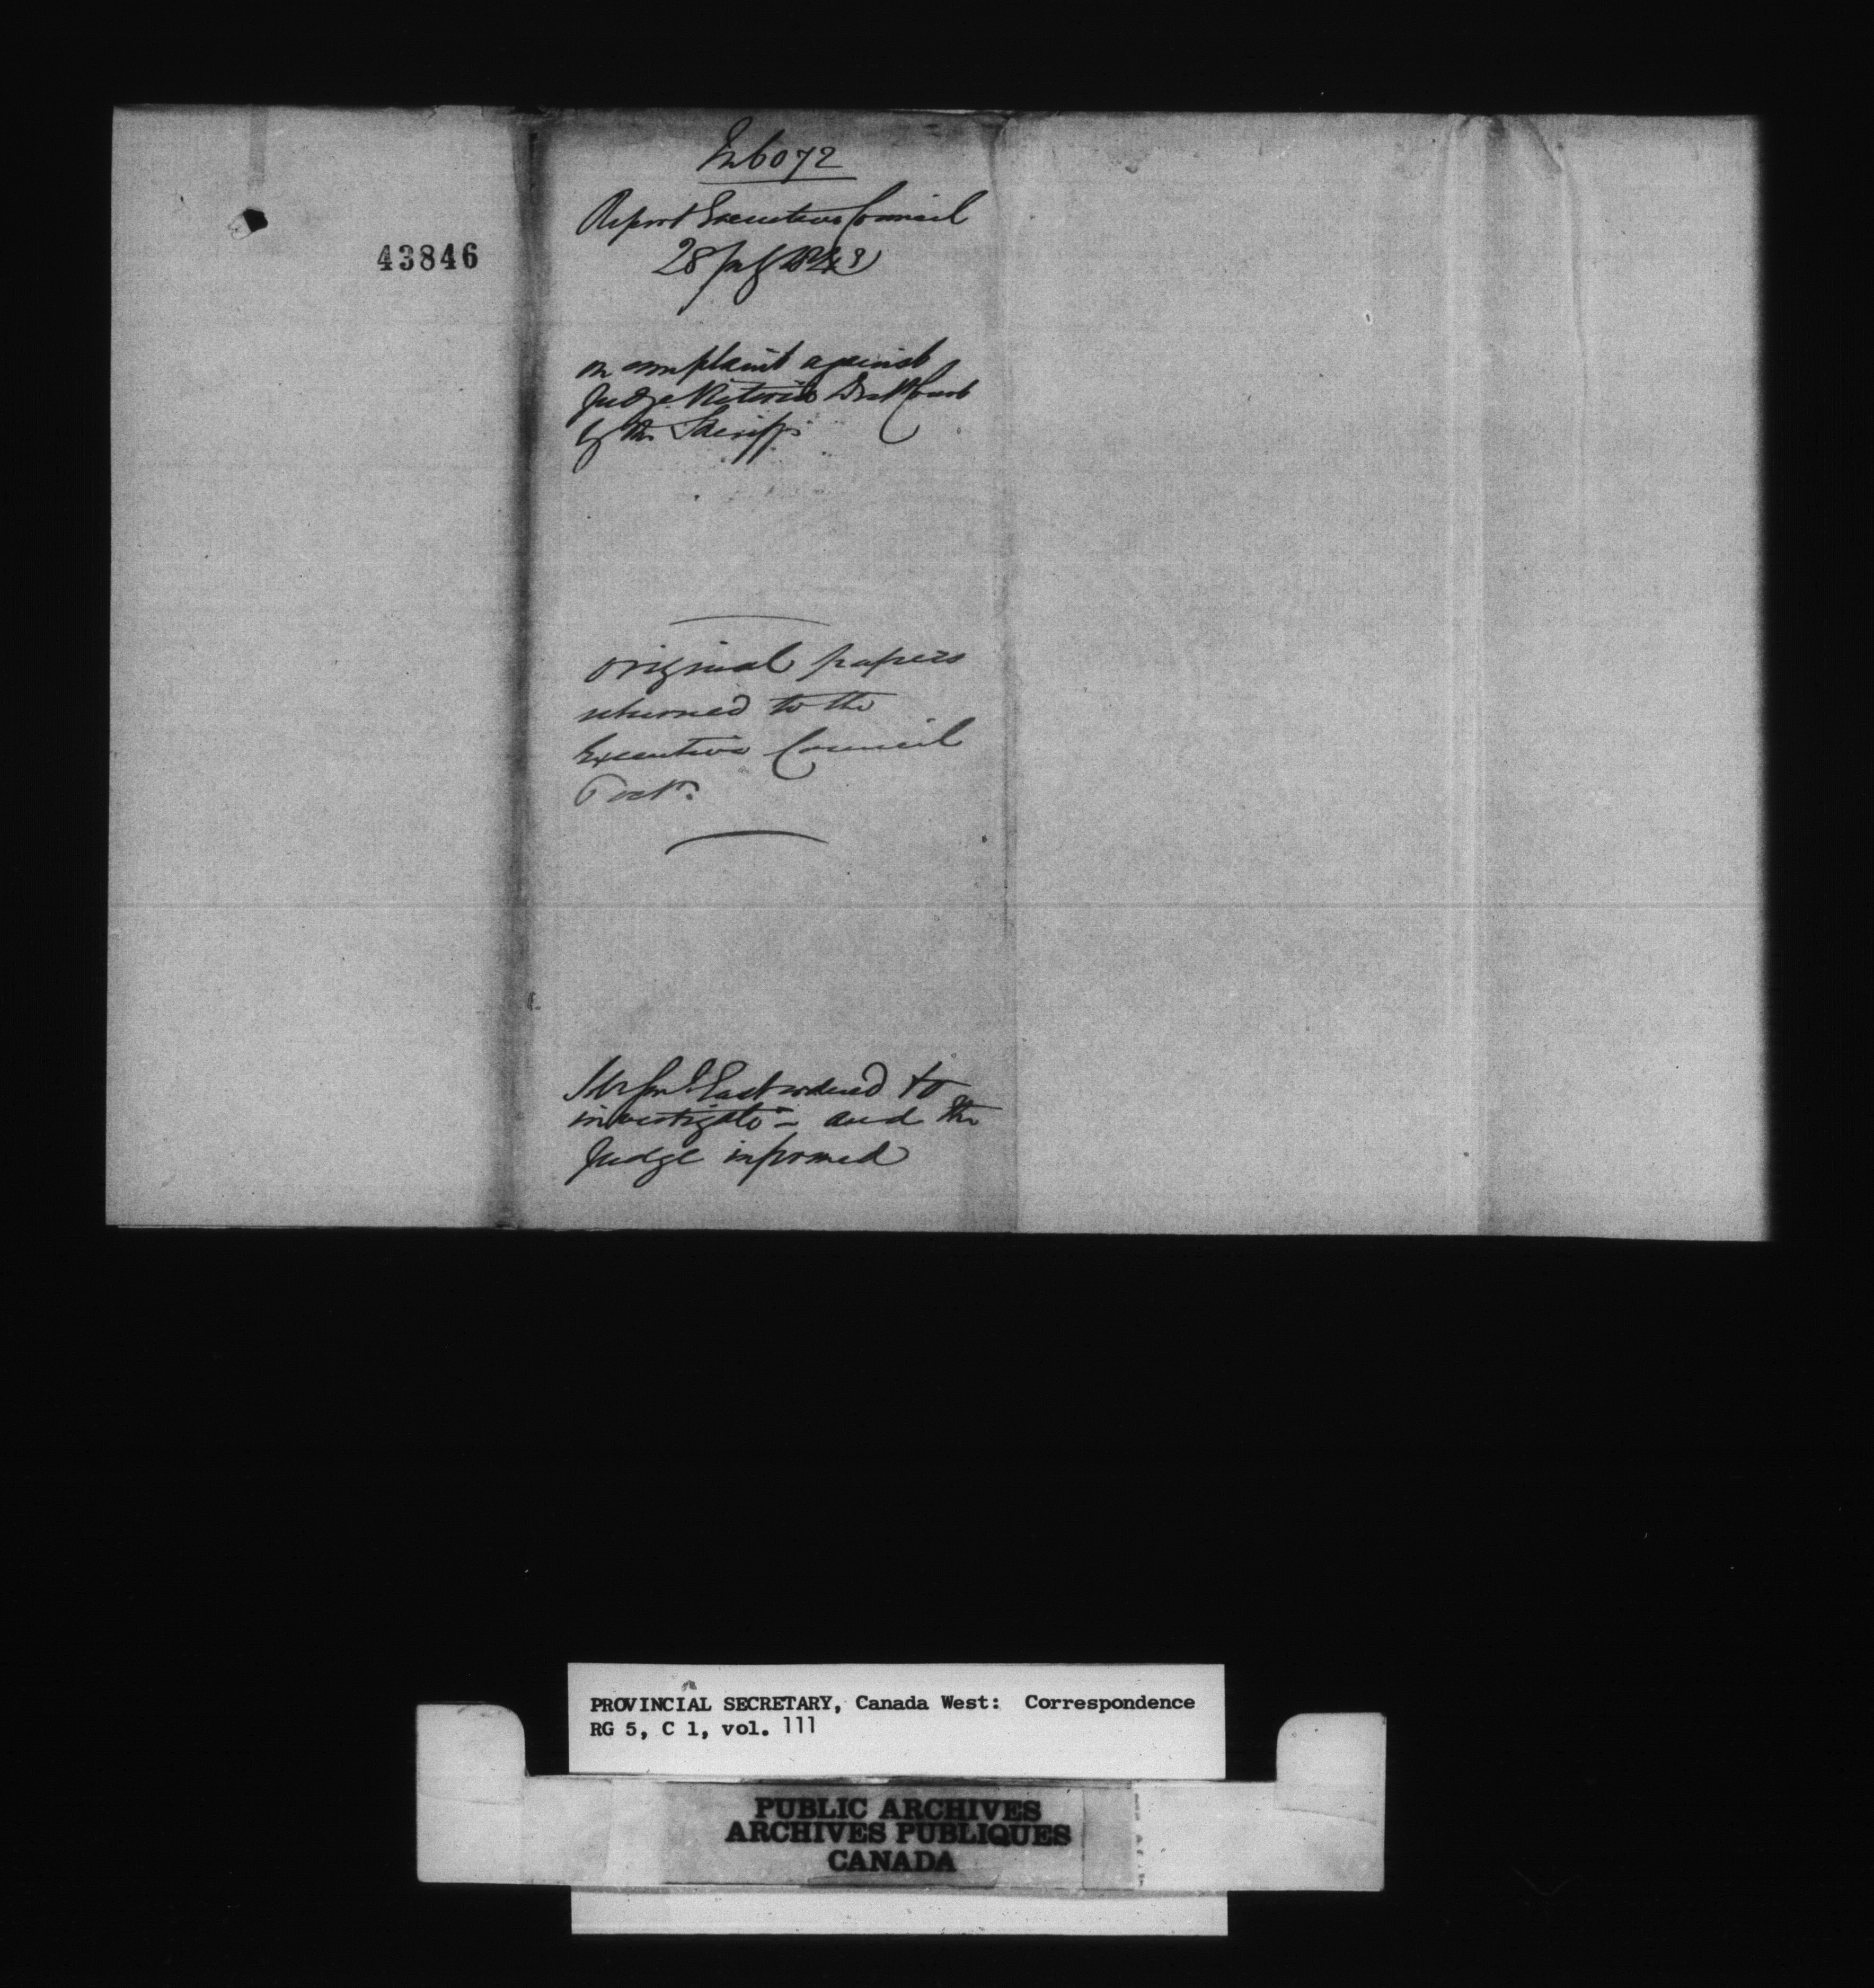 43846
6072
Report Executive Council
28 July 1843
on complaint against
Judge Victoria Dist Court
by the Sheriff
Original papers
returned to the
Executive Council
ordered to
investigate - and the
Judge informed
PROVINCIAL SECRETARY, Canada West: Correspondence
RG 5, C 1, vol. 111
PUBLIC ARCHIVES
ARCHIVES PUBLIQUES
CANADA